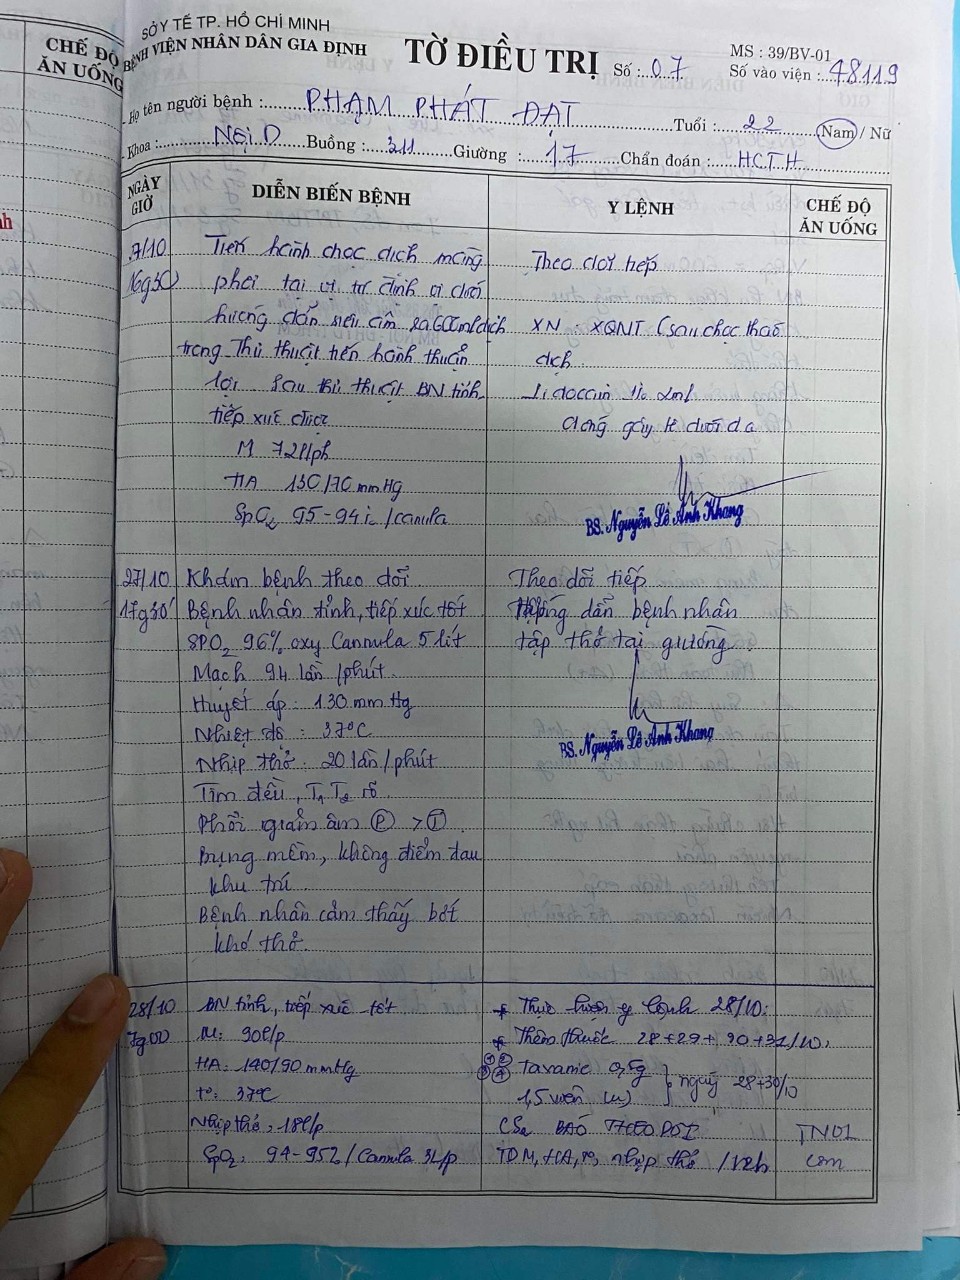 CHẾ ĐỘ
ĂN UỐNG
SỞ Y TẾ TP. HỒ CHÍ MINH
BỆNH VIỆN NHÂN DÂN GIA ĐỊNH
TỜ ĐIỀU TRỊ
Số : 07
MS : 39/BV-01
Số vào viện : 48119
Họ tên người bệnh : PHẠM PHÁT ĐẠT Tuổi : 22 Nam / Nữ
Khoa : Nội D Buồng : 311 Giường : 17 Chẩn đoán : HCTH
NGÀY GIỜ
DIỄN BIẾN BỆNH
Y LỆNH
CHẾ ĐỘ ĂN UỐNG
7/10 Tiến hành chọc dịch màng
16g30 phổi tại vị trí định vị dưới
hướng dẫn siêu âm ra 600ml dịch
trong Thủ thuật tiến hành thuận
lợi Sau thủ thuật BN tỉnh
tiếp xúc được
M 72l/ph
HA 130/70 mmHg
SpO2 95-94% /canula
Theo dõi tiếp
XN : XQNT (sau chọc tháo
dịch
Lidocain 1% 2ml
dùng gây tê dưới da
BS. Nguyễn Lê Anh Khang
27/10 Khám bệnh theo dõi
17g30' Bệnh nhân tỉnh, tiếp xúc tốt
SPO2 96% oxy Cannula 5 lít
Mạch 94 lần /phút.
Huyết áp : 130 mm Hg
Nhiệt độ : 37°C
Nhịp thở : 20 lần/phút
Tim đều, T1 T2 rõ
Phổi giảm âm (P) > (T)
Bụng mềm, không điểm đau
khu trú
Bệnh nhân cảm thấy bớt
khó thở.
Theo dõi tiếp
Hướng dẫn bệnh nhân
tập thở tại giường
BS. Nguyễn Lê Anh Khang
28/10 BN tỉnh, tiếp xúc tốt
7g00 M: 90l/p
HA: 140/90 mmHg
t°: 37°C
Nhịp thở: 18l/p
SpO2: 94-95% / Cannula 3L/p
* Thực hiện y lệnh 28/10:
* Thêm thuốc 28+29+30+31/10
Taxanic 0,5g
1,5 viên (u) } ngày 28+30/10
CS2 BÁO THEO DÕI
TDM, HA, t°, nhịp thở /12h
TN01
cơm